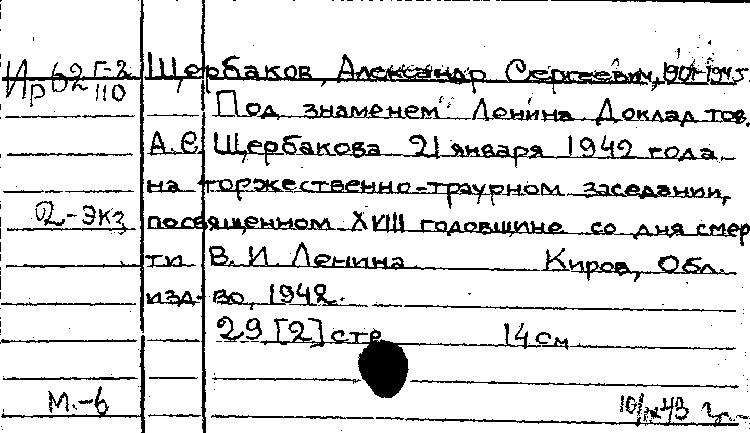 Ир62 Г-2/110
Щербаков, Александр Сергеевич, 1901-1945
Под знаменем Ленина Доклад тов.
А.С. Щербакова 21 января 1942 года
на торжественно-траурном заседании,
2-экз
посвященном XVIII годовщине со дня смер
ти В.И. Ленина Киров, Обл.
изд-во, 1942.
29 [2] стр 14 см
М.-6
10/IX 43 г.